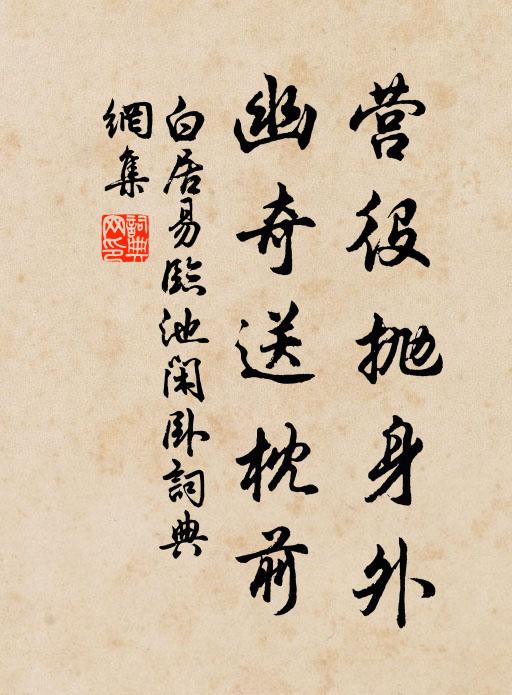 营役抛身外
幽奇送枕前
白居易臨池閑卧詞典
網集
詞典
网印